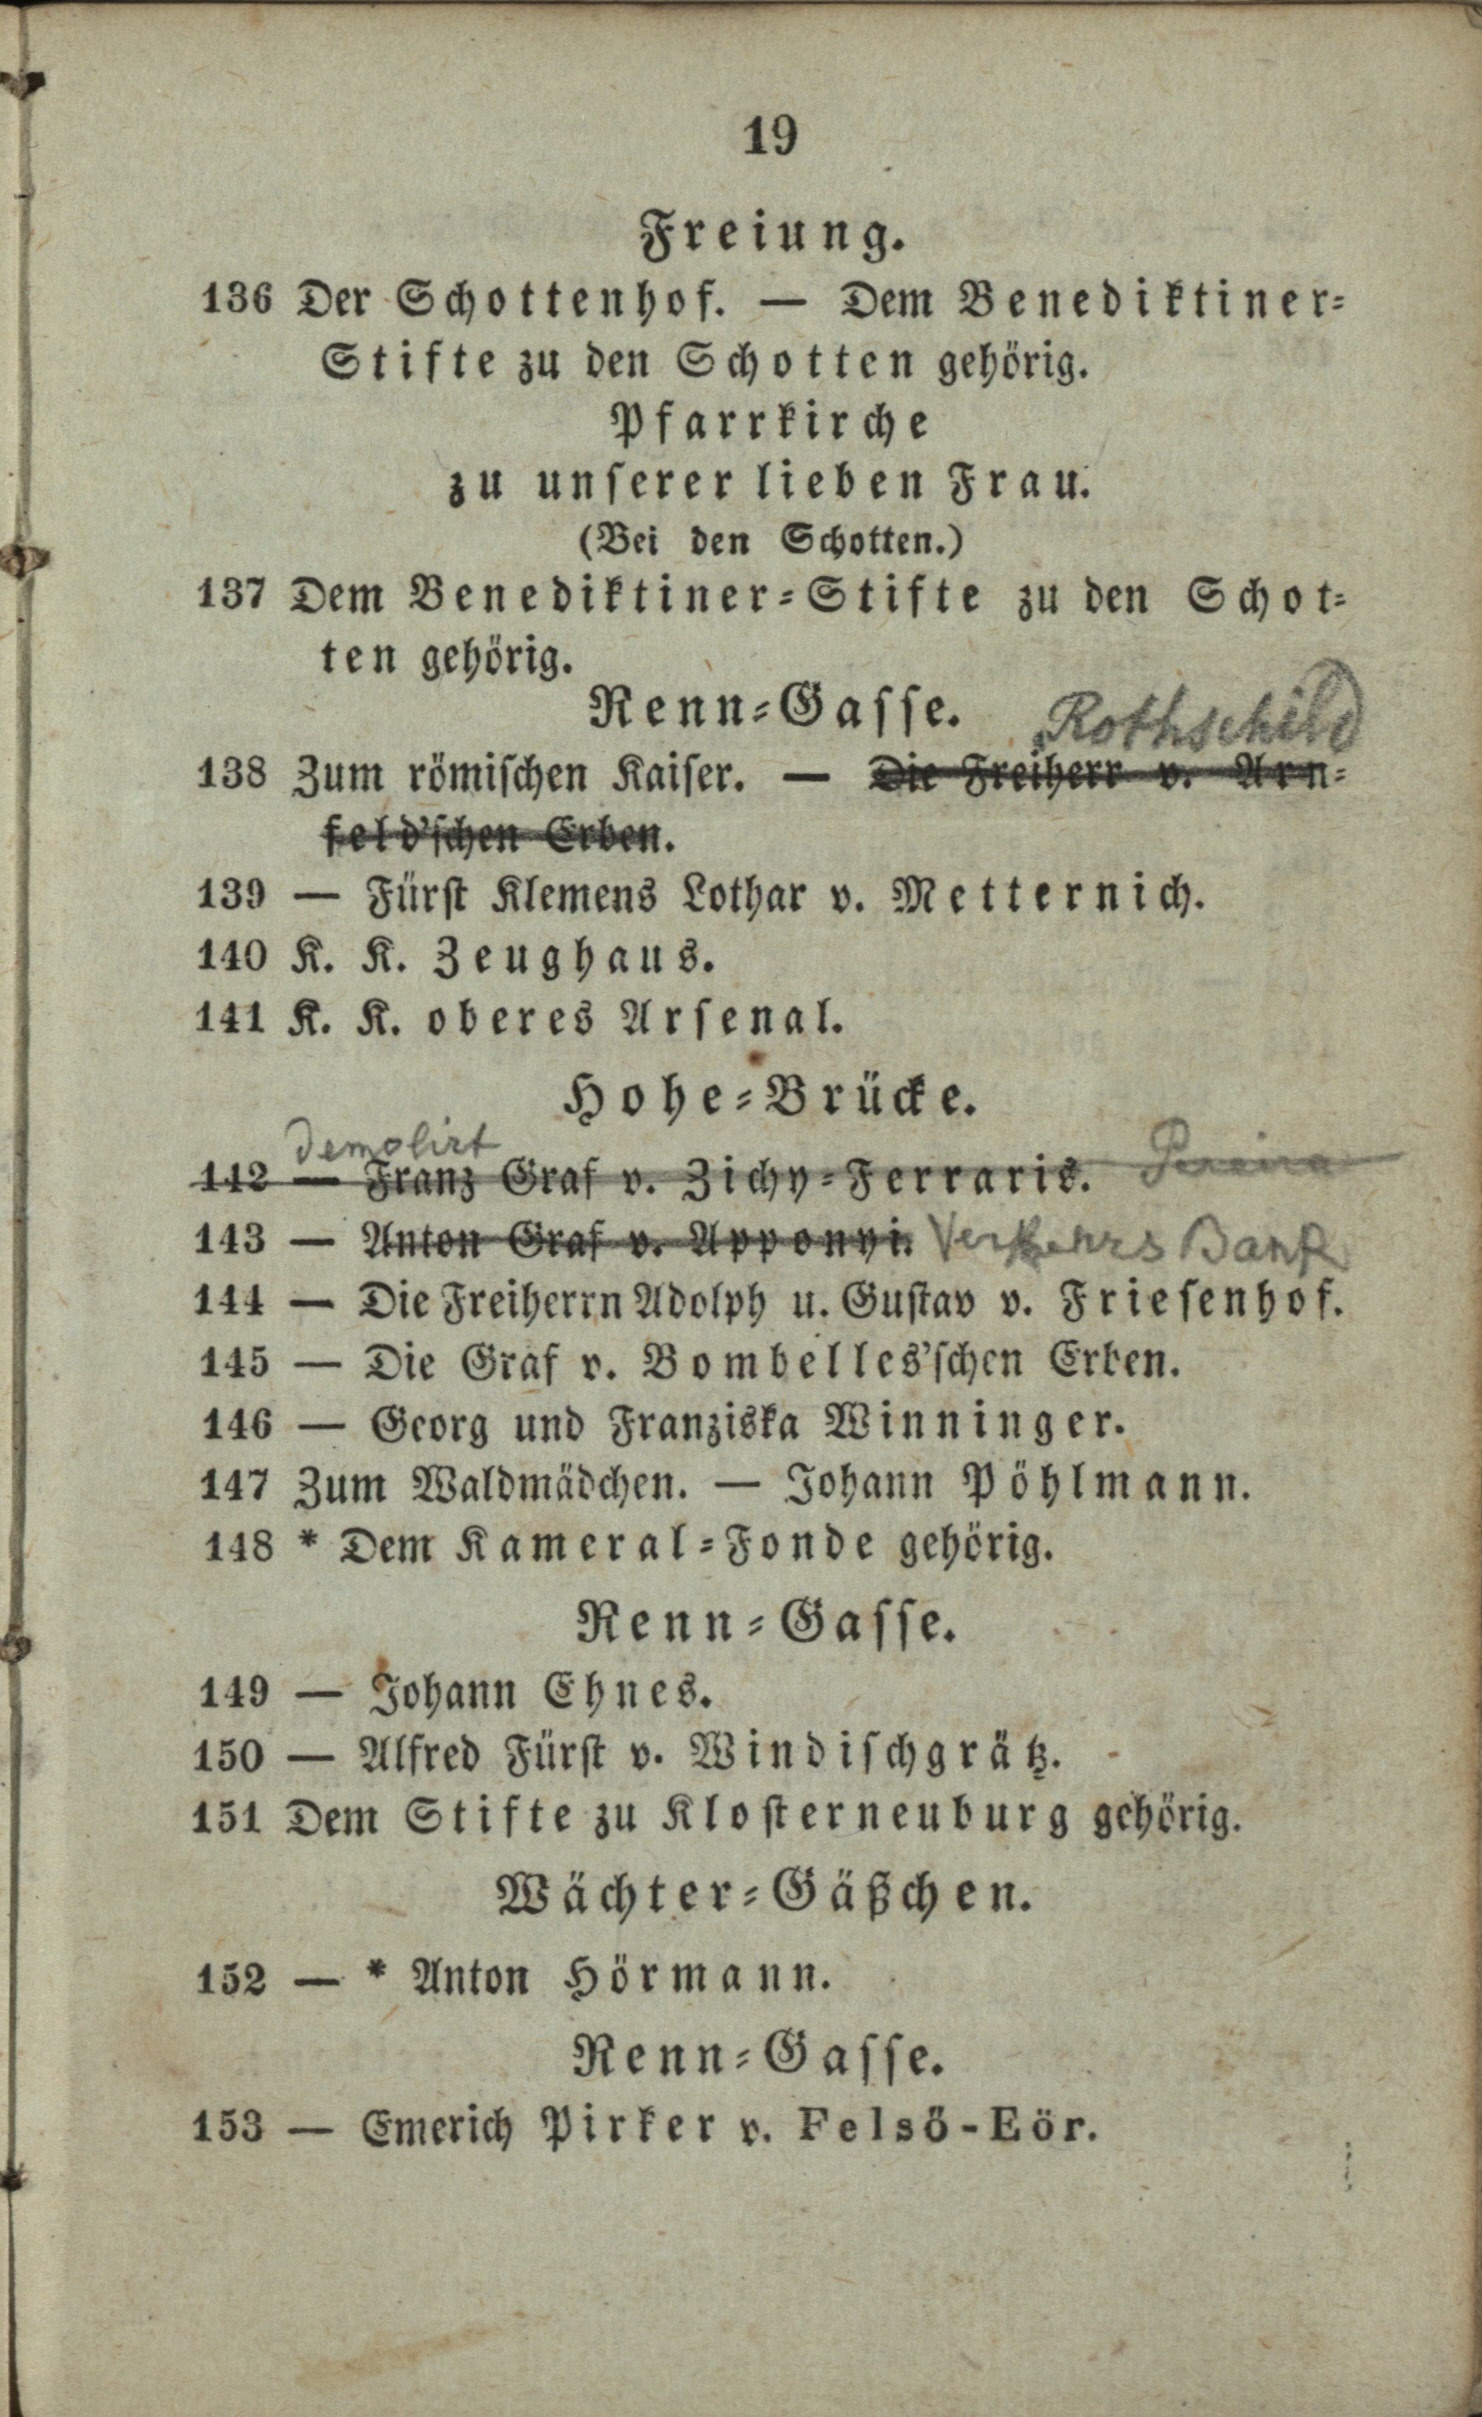 19
Freiung.
136 Der Schottenhof. — Dem Benediktiner-
Stifte zu den Schotten gehörig.
Pfarrkirche
zu unserer lieben Frau.
(Bei den Schotten.)
137 Dem Benediktiner-Stifte zu den Schot-
ten gehörig.
Renn-Gasse.
Rothschild
138 Zum römischen Kaiser. — Die Freiherr v. Arn-
feld'schen Erben.
139 — Fürst Klemens Lothar v. Metternich.
140 K. K. Zeughaus.
141 K. K. oberes Arsenal.
Hohe-Brücke.
Demolirt
142 — Franz Graf v. Zichy-Ferraris. Pereira
143 — Anton Graf v. Apponyi. Verkehrs Bank
144 — Die Freiherrn Adolph u. Gustav v. Friesenhof.
145 — Die Graf v. Bombelles'schen Erben.
146 — Georg und Franziska Winninger.
147 Zum Waldmädchen. — Johann Pöhlmann.
148 * Dem Kameral-Fonde gehörig.
Renn-Gasse.
149 — Johann Ehnes.
150 — Alfred Fürst v. Windischgrätz.
151 Dem Stifte zu Klosterneuburg gehörig.
Wächter-Gäßchen.
152 — * Anton Hörmann.
Renn-Gasse.
153 — Emerich Pirker v. Felsö-Eör.